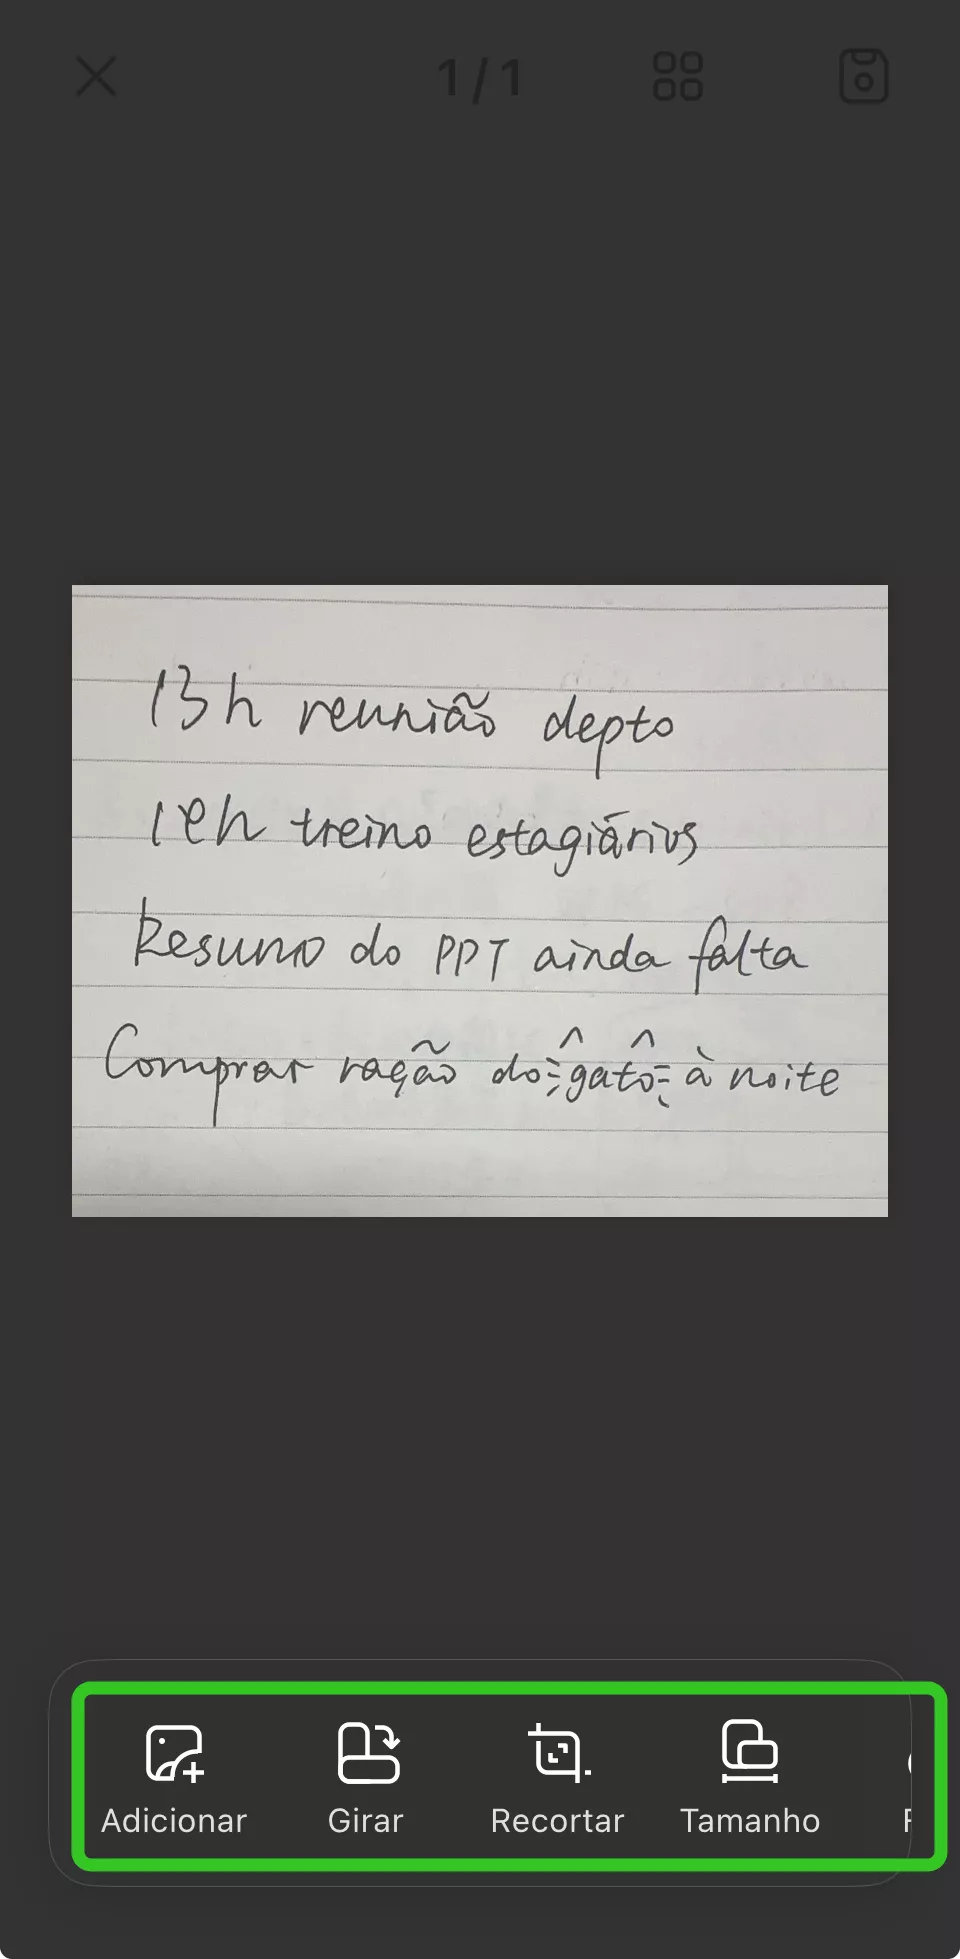 1/1
13h reunião depto
treino estagiários
Resumo do PPT ainda falta
Comprar ração do gato à noite
Adicionar
Girar
Recortar
Tamanho